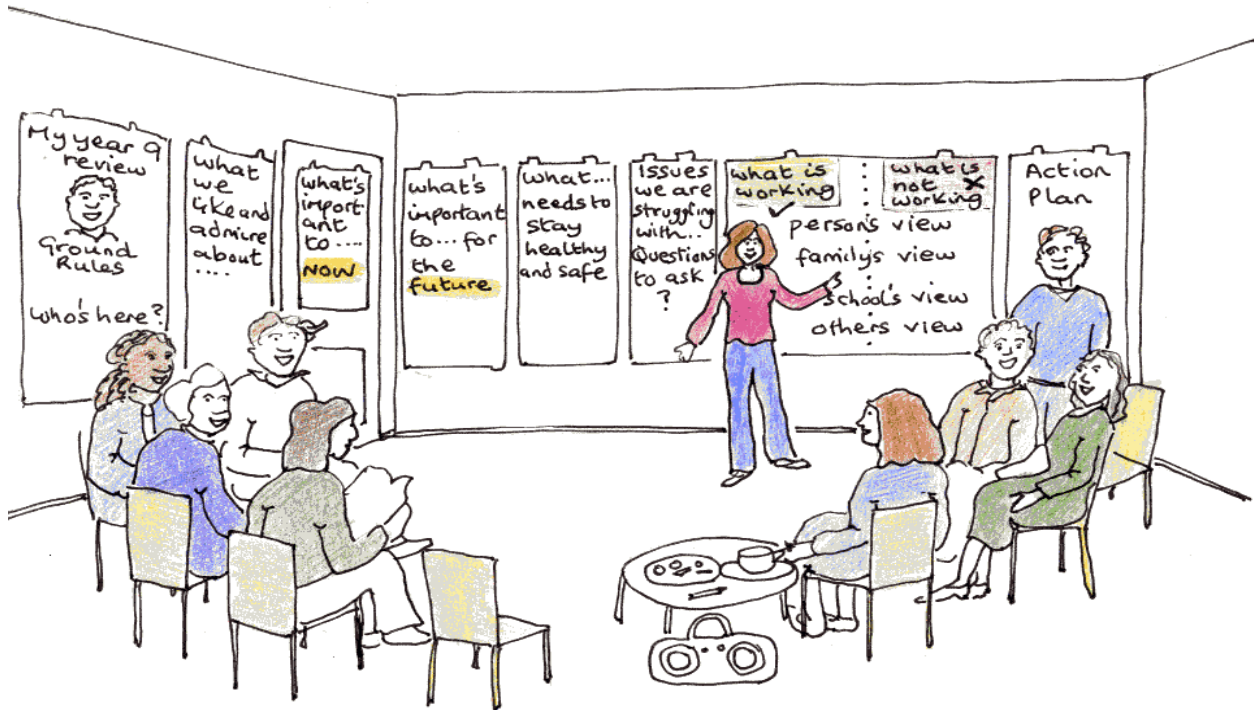 My year 9
review
Ground
Rules
who's here?
what
we
like and
admire
about
....
what's
import
ant
to ....
NOW
what's
important
to... for
the
future
what...
needs to
stay
healthy
and safe
Issues
we are
struggling
with..
Questions
to ask
?
what is
working
what is
not
working
person's view
family's view
school's view
others view
Action
Plan